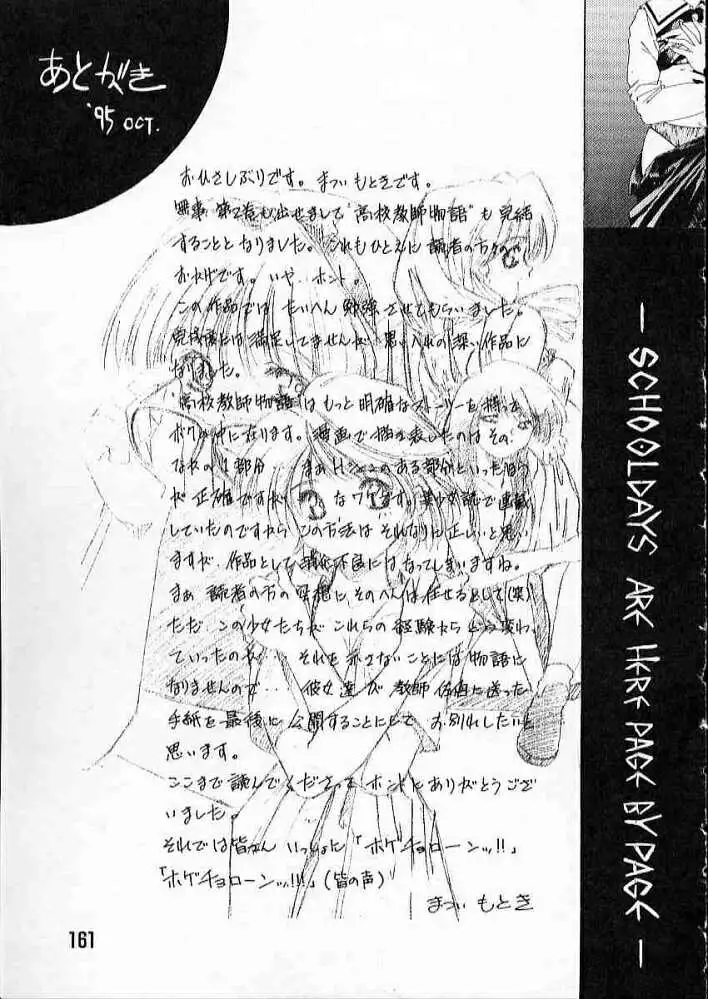 あとがき
'95 OCT.
おひさしぶりです。まついもときです。
無事 第2巻も出せまして"高校教師物語"も完結
することとなりました。これもひとえに読者の方々の
おかげです。いや、ホント。
この作品では たいへん勉強させてもらいました。
完成度には満足してませんが 思い入れの深い作品に
なりました。
"高校教師物語"はもっと明確なストーリーを持って
ボクの中にあります。漫画で描き表したのはその、
なかの1部分… まぁHシーンのある部分といった方
が正確ですが なワケです。美少女誌で連載
していたのですから この方法は それなりに正しいと思い
ますが、作品として消化不良にはなってしまいますね。
まぁ 読者の方の妄想に、そのへんは任せるとして(笑)
ただ、この少女たちが これらの経験から どう変わ
っていったのか… それを示さないことには物語に
なりませんので… 彼女達が 教師 に送った
手紙を最後に公開することにして お別れしたいと
思います。
ここまで読んでくださって ホントにありがとうござ
いました。
それでは皆さん いっしょに「ホゲチョローンッ!!」
「ホゲチョローンッ!!!」(皆の声)
まつい もとき
161
— SCHOOLDAYS ARE HERE PAGE BY PAGE —